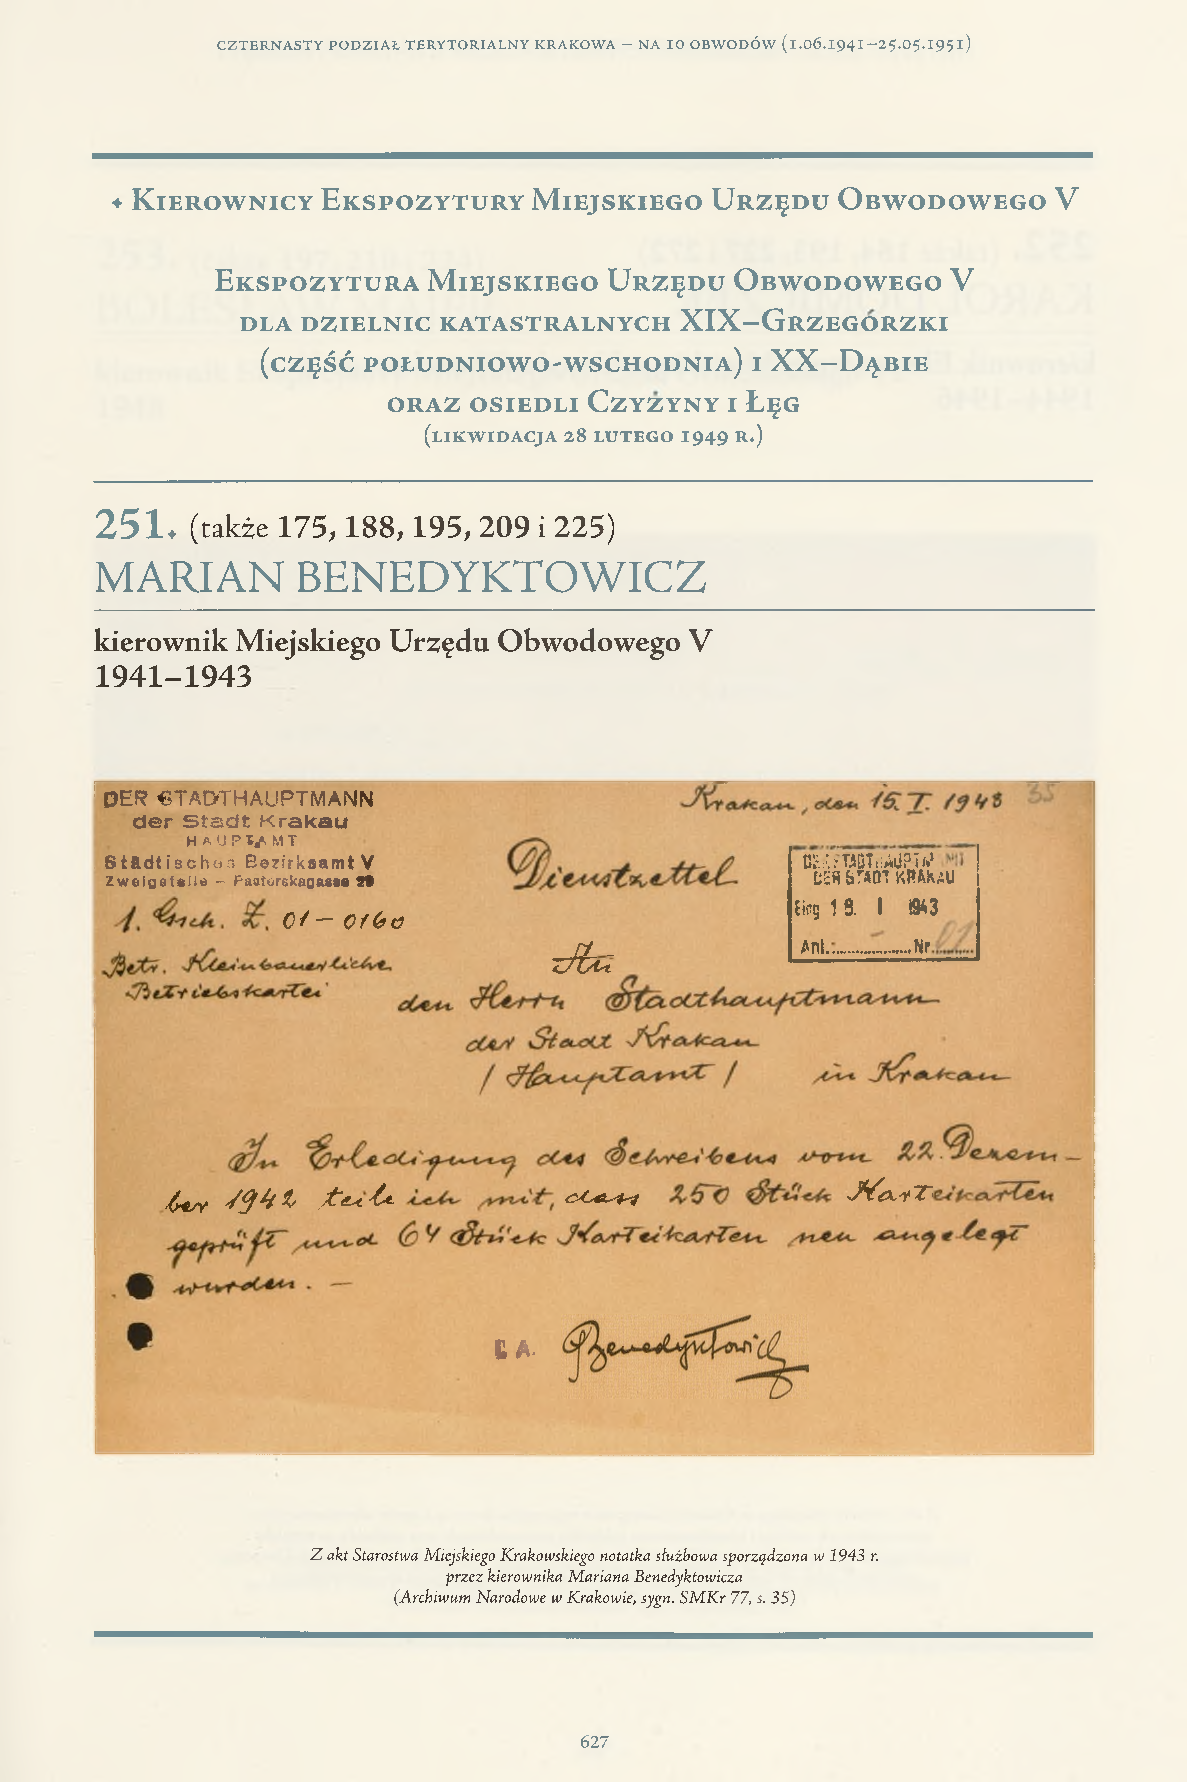 CZTERNASTY PODZIAŁ TERYTORIALNY KRAKOWA – NA 10 OBWODÓW (1.06.1941–25.05.1951)
✦ Kierownicy Ekspozytury Miejskiego Urzędu Obwodowego V
Ekspozytura Miejskiego Urzędu Obwodowego V
dla dzielnic katastralnych XIX–Grzegórzki
(część południowo-wschodnia) i XX–Dąbie
oraz osiedli Czyżyny i Łęg
(likwidacja 28 lutego 1949 r.)
251. (także 175, 188, 195, 209 i 225)
MARIAN BENEDYKTOWICZ
kierownik Miejskiego Urzędu Obwodowego V
1941–1943
DER STADTHAUPTMANN
der Stadt Krakau
HAUPTAMT
Städtisches Bezirksamt V
Zweigstelle – Pastorskagasse
Krakau, den 15. I. 1943
35
Dienstzettel
DER STADTHAUPTMANN
DER STADT KRAKAU
Eing 18. I 1943
Anl.: Nr. 01
1. Gsch. Z. 01 – 0160
Betr. Kleinbauerliche
Betriebskartei
An
den Herrn Stadthauptmann
der Stadt Krakau
/ Hauptamt / in Krakau
In Erledigung des Schreibens vom 22. Dezem–
ber 1942 teile ich mit, dass 250 Stück Karteikarten
geprüft und 64 Stück Karteikarten neu angelegt
wurden. –
Benedyktowicz
Z akt Starostwa Miejskiego Krakowskiego notatka służbowa sporządzona w 1943 r.
przez kierownika Mariana Benedyktowicza
(Archiwum Narodowe w Krakowie, sygn. SMKr 77, s. 35)
627